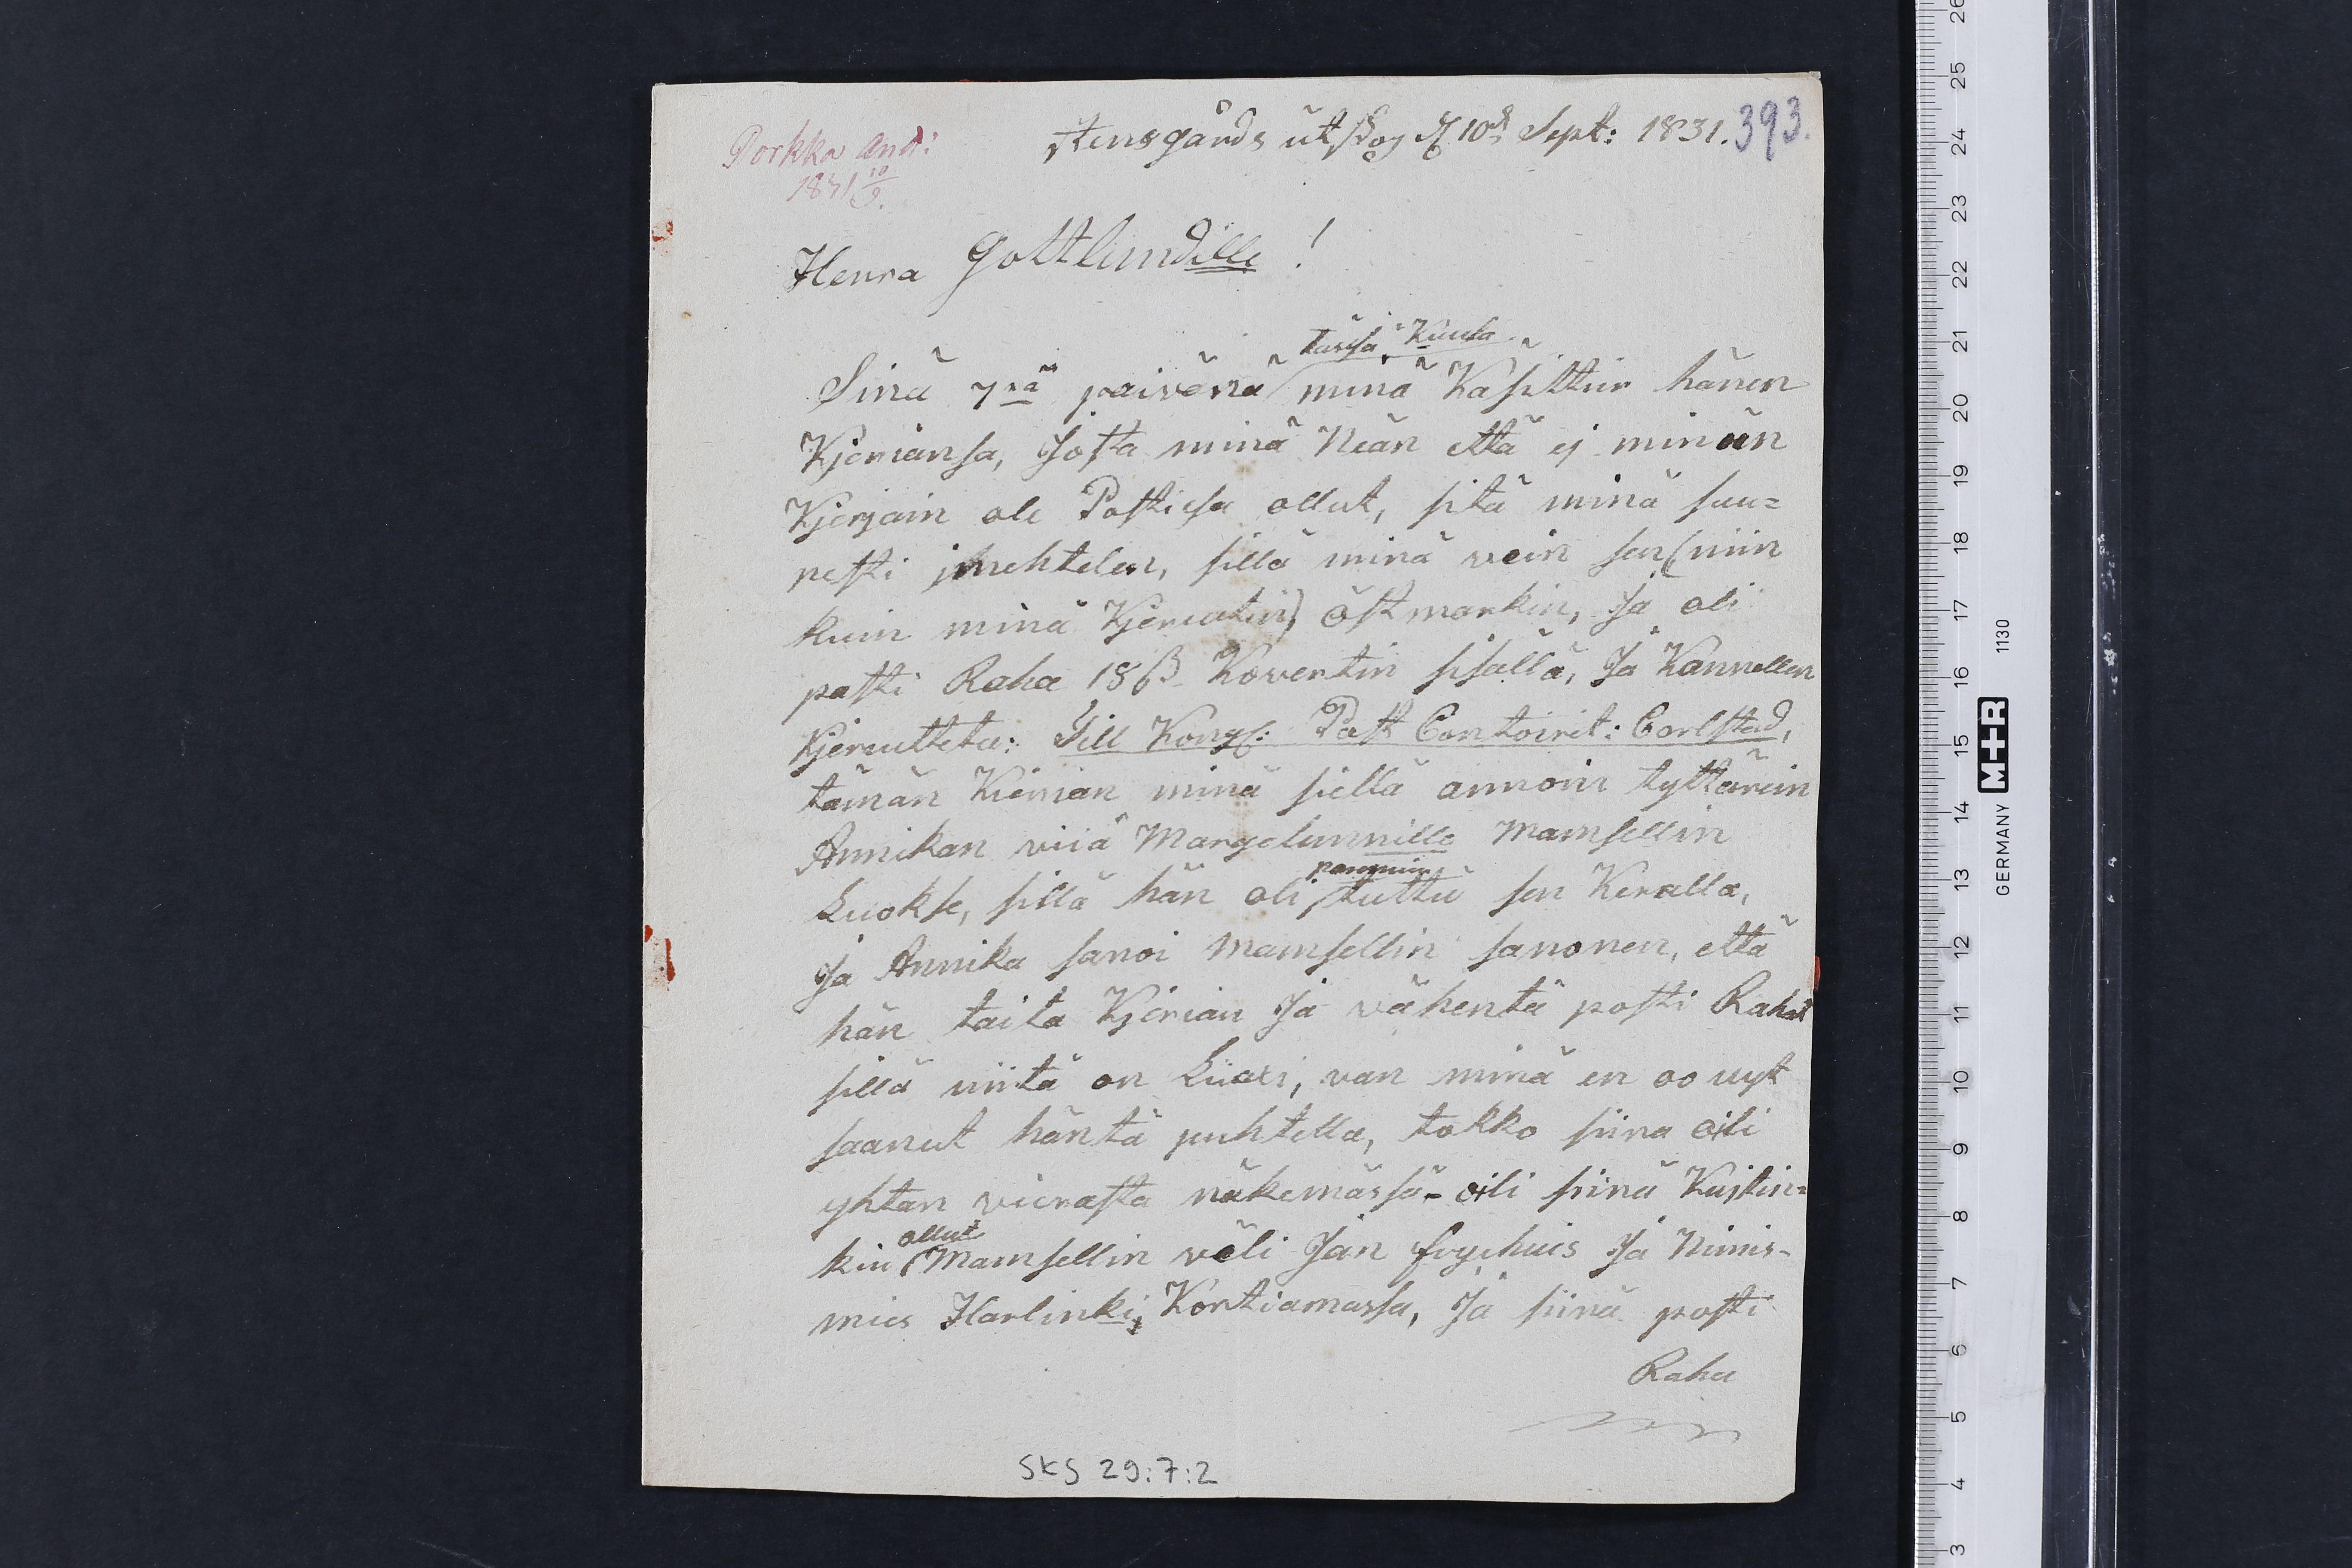 Porkka And:
1831 10/9.
Stensgårds utskog d 10de Sept: 1831. 393.
Herra Gottlundille!
tässä Kuusa
Sinä 7nä päivänä minä Käsittiin hänen
Kjeriansa, Josta minä Neän että ej minuun
Kjerjain ole Postiesa ollut, sitä minä suu=
resti jmehtelen, sillä minä vein sen (niin
kuin minä Kjeruutin) östmarkin, Ja oli
posti Raha 18 ß Kovertin sisällä, Ja Kannellen
Kjeruutettu: Till Kongl: Post Contoiret: Carlstad,
tämän Kierian minä siellä annoin tyttärein
Annikan viiä Margelunnille Mamsellin
pangnin
Luokse, sillä hän oli tuttu sen Keralla,
Ja Annika sanoi Mamsellin sanonen, että
hän taita Kjerian Ja vähentä posti Rahat
sillä niitä on Liiaxi, van minä en oo nyt
saanut häntä puhtella, tokko siina oili
yhtän vierasta näkemässä - oili siinä Kujtin=
ollut
kin Mamsellin veli Jan frychius Ja Nimis-
mies Harlinki, Kortiamassa, Ja siinä posti
Raha
SKS 29:7:2
GERMANY M+R 1130
26
25
24
23
22
21
20
19
18
17
16
15
14
13
12
11
10
9
8
7
6
5
4
3